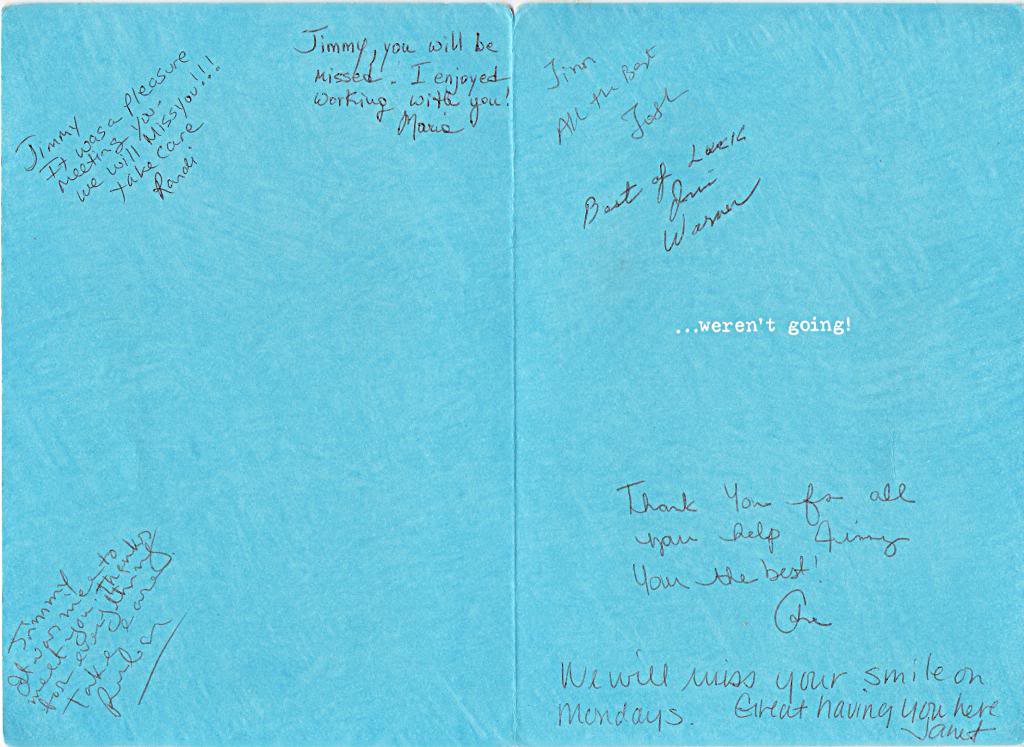 Jimmy
It was a pleasure
meeting you.
we will Miss you!!!
take care
Randi
Jimmy, you will be
missed. I enjoyed
working with you!
Maria
Jimmy
It was nice to
meet you. Thanks
for everything
Take care
Jim
All the Best
Josh
Best of Luck
Jim
Warner
...weren't going!
Thank You for all
your help Jimmy
Your the best!
We will miss your smile on
Mondays. Great having you here
Janet